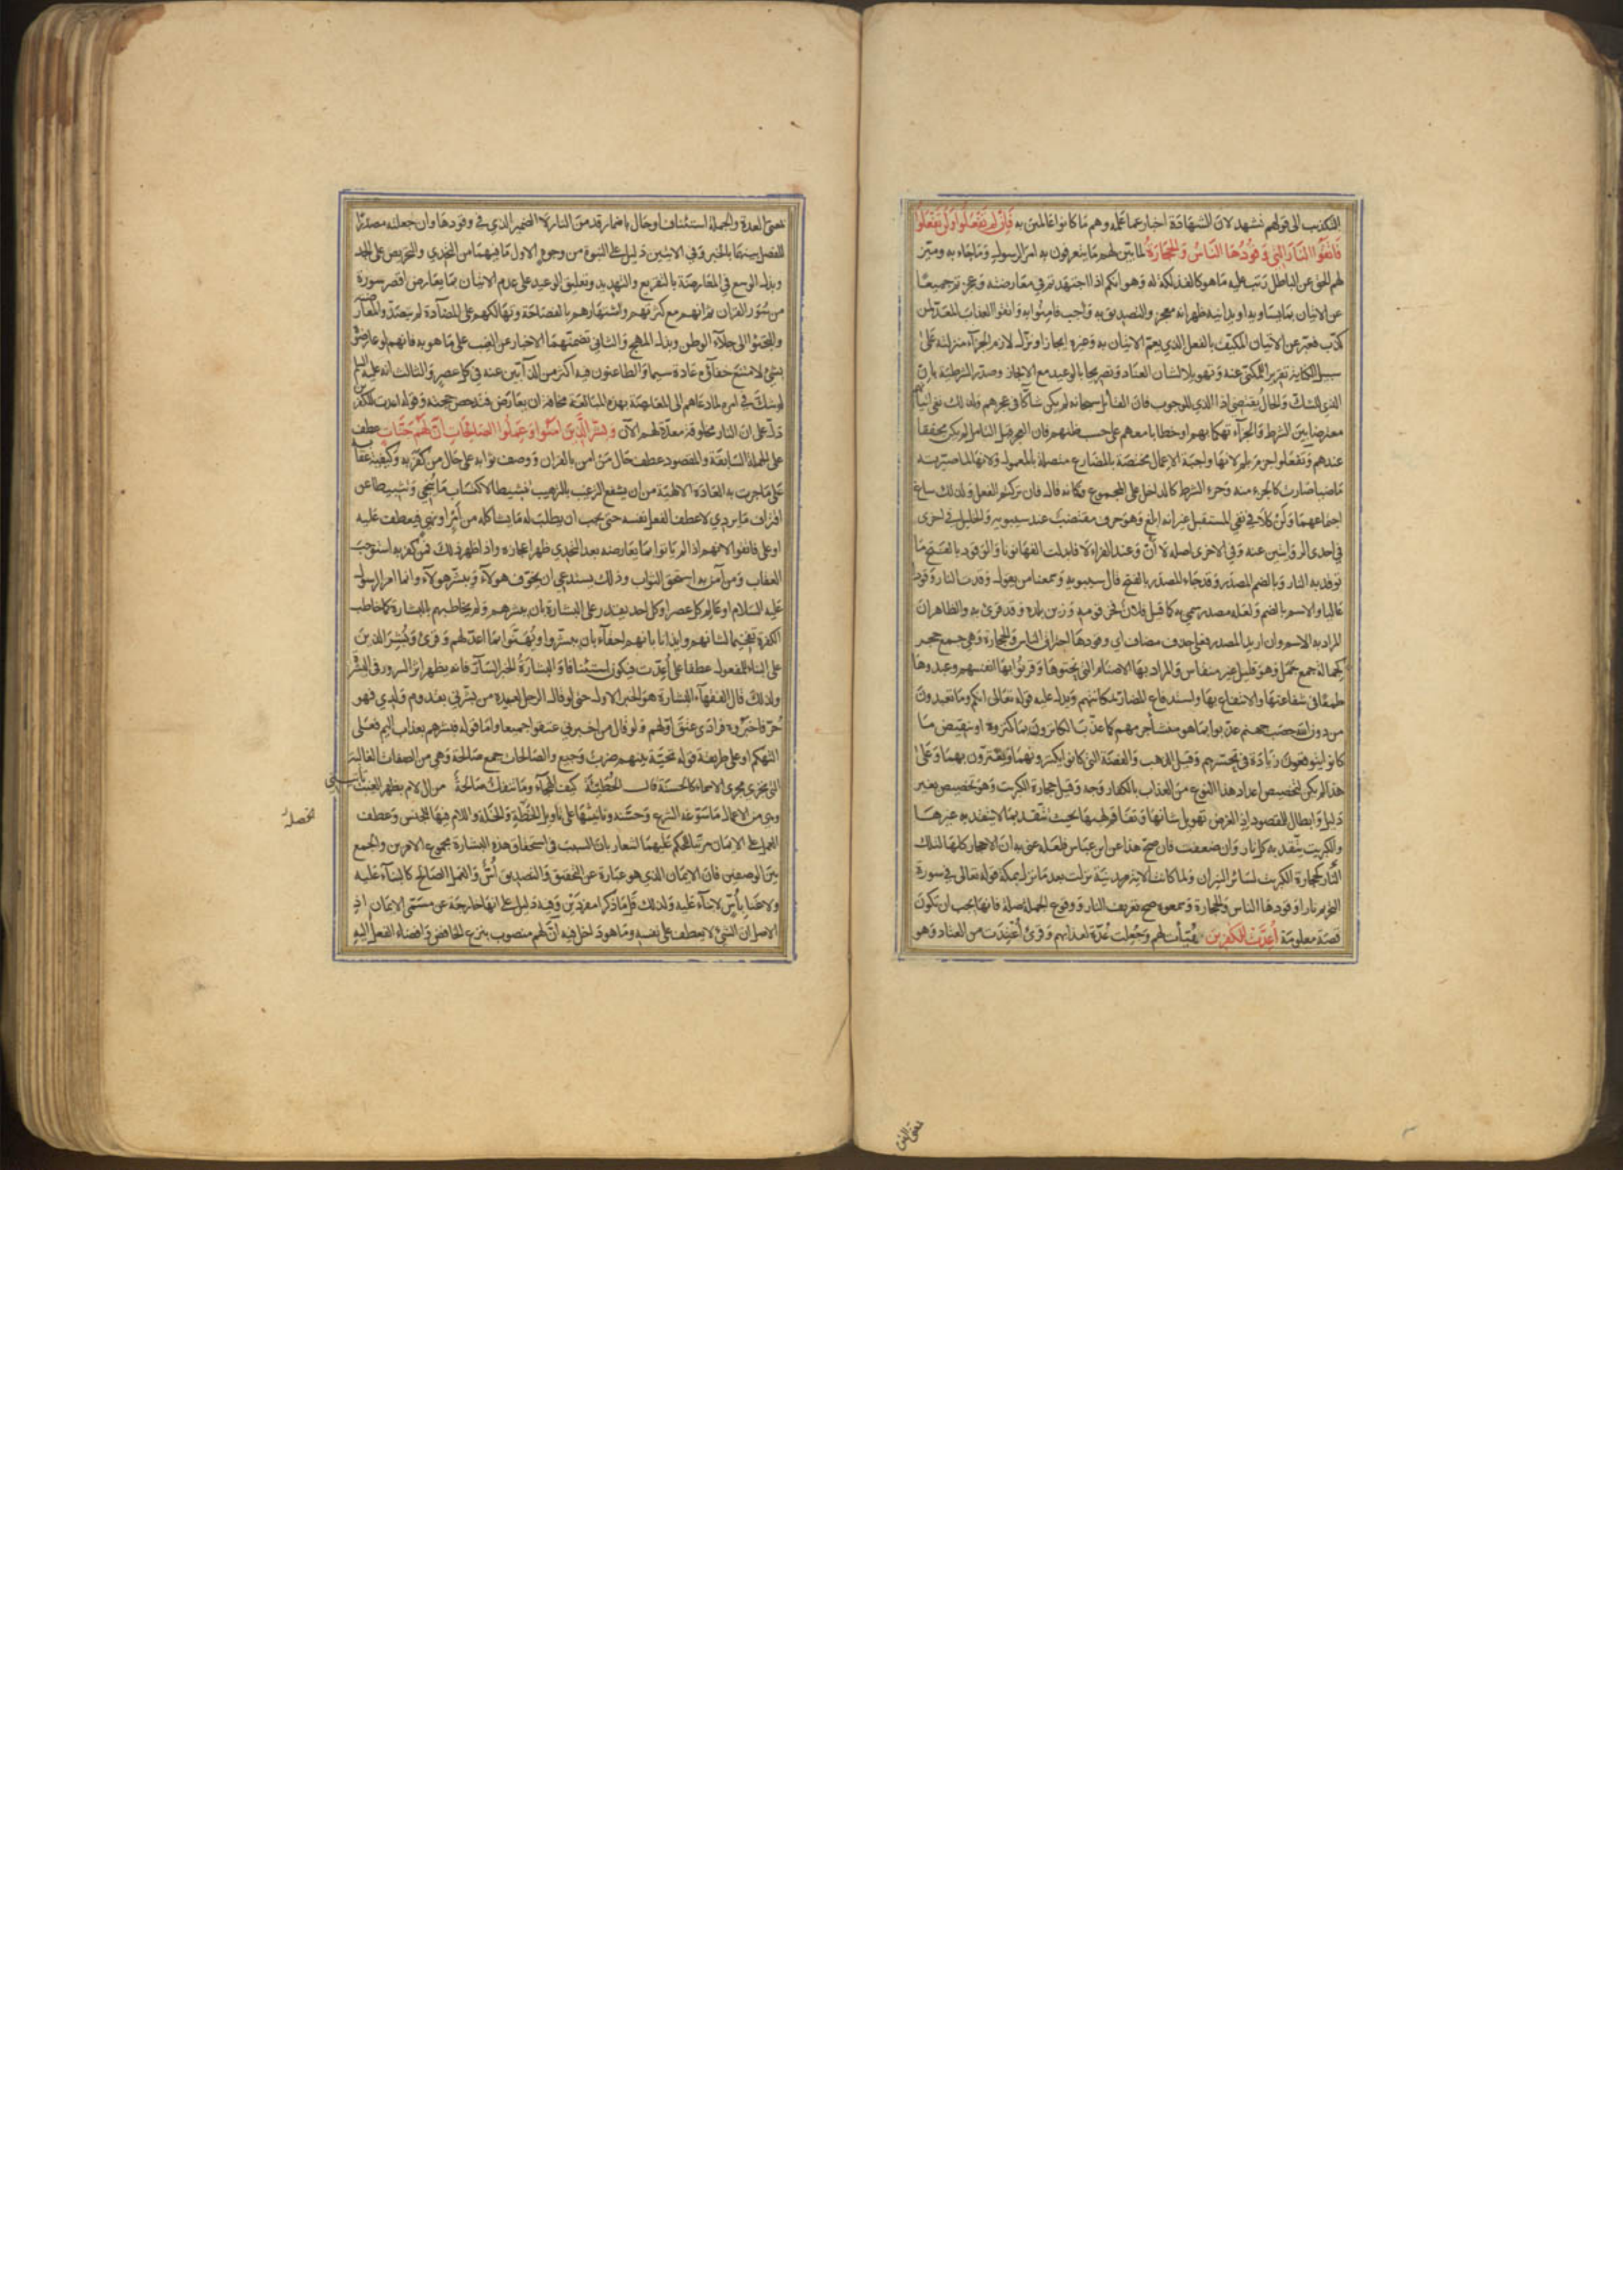 التكذيب الى قولهم نشهد لان الشهادة اخبار عما علمه وهم ما كانوا عالمين به فَاِنْ لَمْ تَفْعَلُوا وَلَنْ تَفْعَلُوا
فَاتَّقُوا النَّارَ الَّتِي وَقُودُهَا النَّاسُ وَالْحِجَارَةُ لما بيّن لهم ما يتعرفون به امر الرسول وما جاء به وميّز
لهم الحق عن الباطل رتب عليه ما هو كالفذلكة له وهو انكم اذا اجتهدتم في معارضته وعجزتم جميعا
عن الاتيان بما يساويه او يدانيه ظهر انه معجز والتصديق به واجب فامنوا به واتقوا العذاب المعدّ لمن
كذّب فعبّر عن الاتيان المكيّف بالفعل الذي يعم الاتيان به وغيره ايجازا ونزّل لازم الجزاء منزلته على
سبيل الكناية تقريرا للمكنى عنه وتهويلا لشان العناد وتصريحا بالوعيد مع الايجاز وصدّر الشرطية بان
الذي للشك والحال يقتضي اذا الذي للوجوب فان القائل سبحانه لم يكن شاكا في عجزهم ولذلك نفى اتيانهم
معترضا بين الشرط والجزاء تهكما بهم او خطابا معهم على حسب ظنهم فان العجز قبل التامل لم يكن محققا
عندهم وتفعلوا جزم بلم لانها واجبة الاعمال مختصة بالمضارع متصلة بالمعمول ولانها لما صيرته
ماضيا صارت كالجزء منه وحرف الشرط كالداخل على المجموع وكانه قال فان تركتم الفعل ولذلك ساغ
اجتماعهما ولن كلا في نفي المستقبل غير انه ابلغ وهو حرف مقتضب عند سيبويه والخليل في احدى
في احدى الروايتين عنه وفي الاخرى اصله لا أن وعند الفراء لا فابدلت الفها نونا والوقود بالفتح ما
توقد به النار وبالضم المصدر وقد جاء المصدر بالفتح قال سيبويه وسمعنا من يقول وقدت النار وقودا
عاليا والاسم بالضم ولعله مصدر سمي به كما قيل فلان فخر قومه وزين بلده وقد قرئ به والظاهر ان
المراد به الاسم وان اريد المصدر فعلى حذف مضاف اي وقودها احتراق الناس والحجارة وهي جمع حجر
كجمالة جمع جمل وهو قليل غير منقاس والمراد بها الاصنام التي نحتوها وقرنوا بها انفسهم وعبدوها
طمعا في شفاعتها والانتفاع بها واستدفاع المضار لمكانتهم ويدل عليه قوله تعالى انكم وما تعبدون
من دون الله حصب جهنم عذّبوا بما هو منشأ جرمهم كما عذّب الكانزون بما كنزوه او بنقيض ما
كانوا يتوقعون زيادة في تحسّرهم وقيل الذهب والفضة التي كانوا يكنزونهما ويغترون بهما وعلى
هذا لم يكن لتخصيص اعداد هذا النوع من العذاب بالكفار وجه وقيل حجارة الكبريت وهو تخصيص بغير
دليل وابطال للمقصود اذ الغرض تهويل شانها وتفاقم لهبها بحيث تتّقد بما لا يتقد به غيرها
والكبريت يتّقد به كل نار وان ضعفت فان صحّ هذا عن ابن عباس فلعله عنى به ان الاحجار كلها لتلك
النار كحجارة الكبريت لسائر النيران ولما كانت الاية مدنية نزلت بعد ما نزل بمكة قوله تعالى في سورة
التحريم نارا وقودها الناس والحجارة وسمعوه صح تعريف النار ووقوع الجملة صلة فانها يجب ان تكون
قصّة معلومة أُعِدَّتْ لِلْكٰفِرِينَ هُيّأت لهم وجُعلت عُدّة لعذابهم وقرئ أُعْتِدَت من العتاد وهو
بمعنى العدة والجملة استئناف او حال باضمار قد من النار لا الضمير الذي في وقودها وان جعلته مصدرا
للفصل بينهما بالخبر وفي الايتين دليل على النبوة من وجوه الاول ما فيهما من التحدي والتحريض على الجد
وبذل الوسع في المعارضة بالتقريع والتهديد وتعليق الوعيد على عدم الاتيان بما يعارض اقصر سورة
من سُور القران ثم انهم مع كثرتهم واشتهارهم بالفصاحة وتهالكهم على المضادة لم يتصدّوا لمعارضته
والتجئوا الى جلاء الوطن وبذل المهج والثاني تضمنهما الاخبار عن الغيب على ما هو به فانهم لو عارضوه
بشئ لامتنع خفاؤه عادة سيما والطاعنون فيه اكثر من الذابين عنه في كل عصر والثالث انه عليه السلام
لو شك في امره لما دعاهم الى المعارضة بهذه المبالغة مخافة ان يعارض فتدحض حجته وقوله اعدت للكفرين
دلّ على ان النار مخلوقة معدّة لهم الآن وَبَشِّرِ الَّذِينَ اٰمَنُوا وَعَمِلُوا الصَّالِحَاتِ اَنَّ لَهُمْ جَنَّاتٍ عطف
على الجملة السابقة والمقصود عطف حال من امن بالقران ووصف ثوابه على حال من كفر به وكيفية عقابه
على ما جرت به العادة الالهية من ان يشفع الترغيب بالترهيب تنشيطا لاكتساب ما ينجي وتثبيطا عن
اقتراف ما يردي لا عطف الفعل نفسه حتى يجب ان يطلب له ما يشاكله من امر او نهي فيعطف عليه
او على فاتقوا لانهم اذا لم ياتوا بما يعارضه بعد التحدي ظهر اعجازه واذا ظهر ذلك فمن كفر به استوجب
العقاب ومن آمن به استحق الثواب وذلك يستدعي ان يخوّف هولاء ويبشّر هولاء وانما امر الرسول
عليه السلام او عالم كل عصر او كل احد يقدر على البشارة بان يبشرهم ولم يخاطبهم بالبشارة كما خاطب
الكفرة تفخيما لشانهم وايذانا بانهم احقاء بان يبشّروا ويُهنّئوا بما اعدّ لهم وقرئ وبُشِّرَ الذين
على البناء للمفعول عطفا على أُعِدّت فيكون استئنافا والبشارةُ الخبر السارّ فانه يظهر اثر السرور في البشرة
ولذلك قال الفقهاء البشارة هو الخبر الاول حتى لو قال الرجل لعبيده من بشّرني بقدوم ولدي فهو
حُرّ فاخبروه فرادى عتق اوّلهم ولو قال من اخبرني عتقوا جميعا واما قوله فبشرهم بعذاب اليم فعلى
التهكم او على طريقة قوله تحيّة بينهم ضربٌ وجيع والصالحات جمع صالحة وهي من الصفات الغالبة
التي تجري مجرى الاسماء كالحسنة قال الحُطَيْئَة كيف الهجاء وما تنفكّ صالحةٌ من آل لام بظهر الغيب تأتيني
وهي من الاعمال ما سوّغه الشرع وحسّنه وتانيثها على تاويل الخَصْلة والخَلّة واللام فيها للجنس وعطف
خصلة
العمل على الايمان مرتبا للحكم عليهما اشعار بان السبب في استحقاق هذه البشارة مجموع الامرين والجمع
بين الوصفين فان الايمان الذي هو عبارة عن التحقيق والتصديق أُسٌّ والعمل الصالح كالبناء عليه
ولا غناء بأُسّ لا بناء عليه ولذلك قلّما ذكرا مفردين وفيه دليل على انها خارجة عن مسمّى الايمان اذ
الاصل ان الشئ لا يعطف على نفسه وما هو داخل فيه انّ لهم منصوب بنزع الخافض وافضاء الفعل اليه